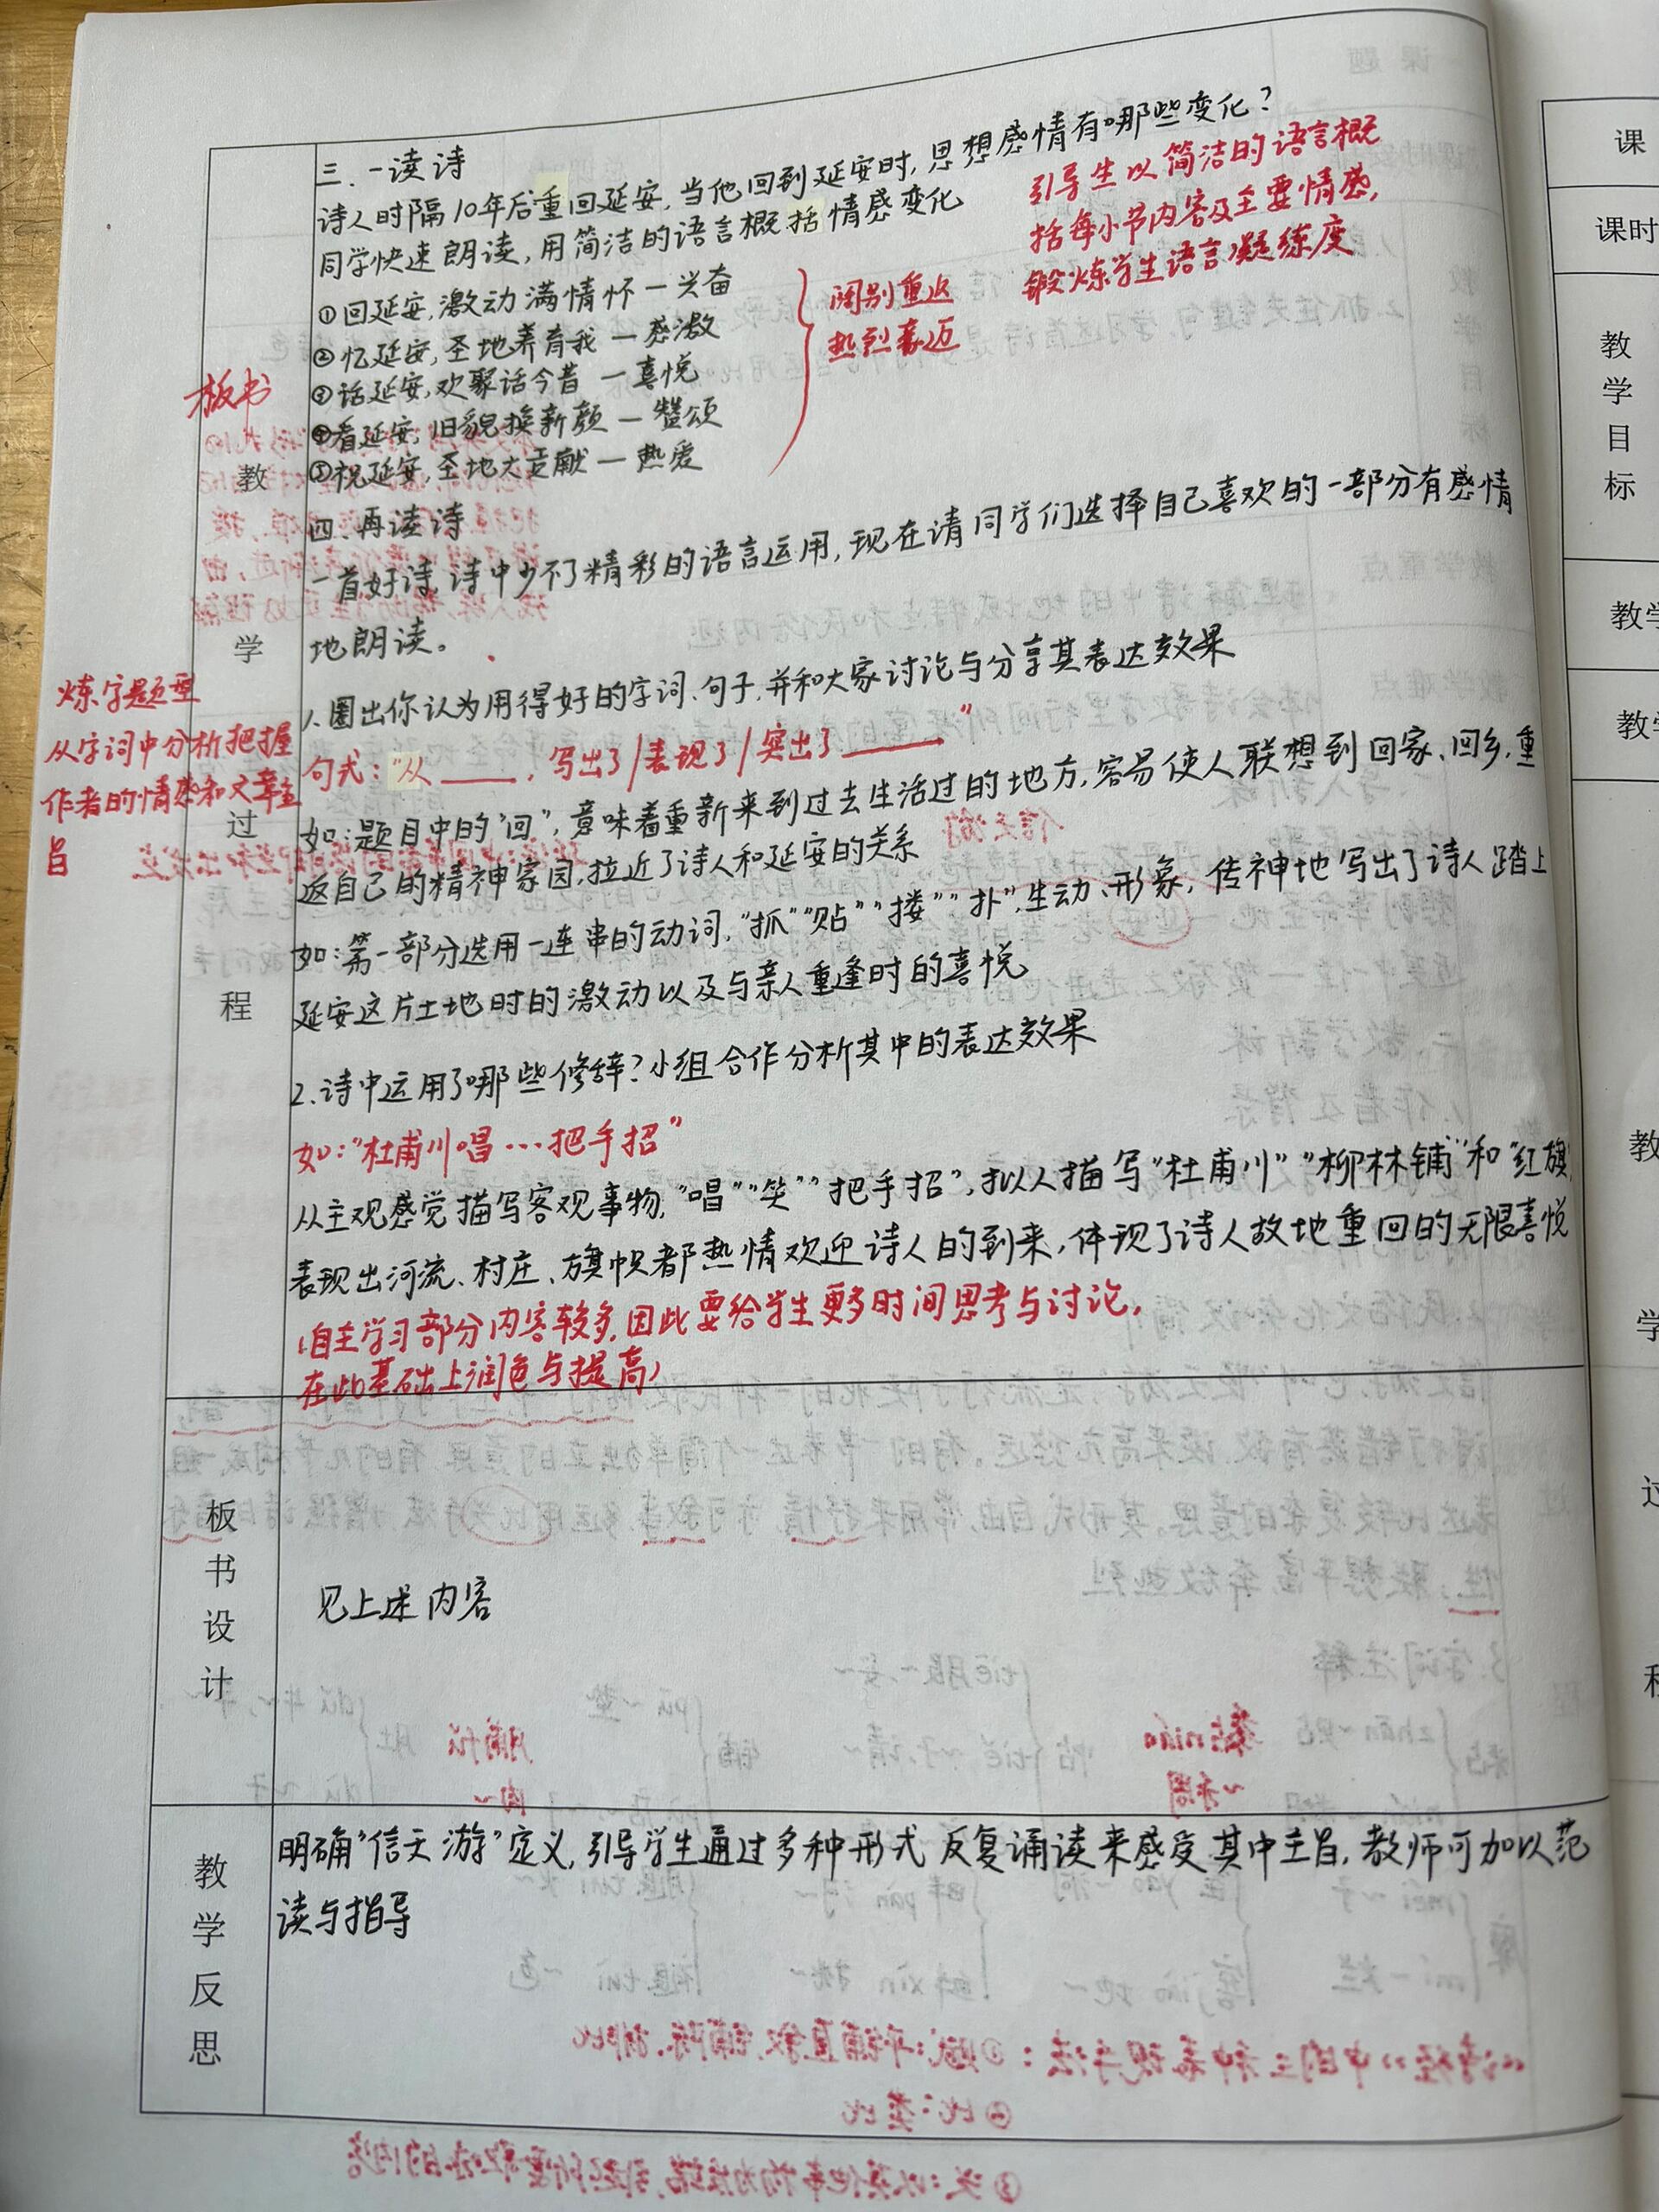 三、一读诗
诗人时隔10年后重回延安,当他回到延安时,思想感情有哪些变化?
同学快速朗读,用简洁的语言概括情感变化
引导生以简洁的语言概
括每小节内容及主要情感,
锻炼学生语言凝练度
①回延安,激动满情怀—兴奋
②忆延安,圣地养育我—感激
③话延安,欢聚话今昔—喜悦
④看延安,旧貌换新颜—赞颂
⑤祝延安,圣地大贡献—热爱
阔别重返
热烈豪迈
板书
四、再读诗
一首好诗,诗中少不了精彩的语言运用,现在请同学们选择自己喜欢的一部分有感情
地朗读。
1.圈出你认为用得好的字词、句子,并和大家讨论与分享其表达效果
句式:“从____,写出了/表现了/突出了____”
炼字题型
从字词中分析把握
作者的情感和文章主
旨
如:题目中的“回”,意味着重新来到过去生活过的地方,容易使人联想到回家、回乡,重
返自己的精神家园,拉近了诗人和延安的关系
如:第一部分选用一连串的动词,“抓”“贴”“搂”“扑”,生动、形象,传神地写出了诗人踏上
延安这片土地时的激动以及与亲人重逢时的喜悦
2.诗中运用了哪些修辞?小组合作分析其中的表达效果
如:“杜甫川唱…把手招”
从主观感觉描写客观事物,“唱”“笑”“把手招”,拟人描写“杜甫川”“柳林铺”和“红旗”
表现出河流、村庄、旗帜都热情欢迎诗人的到来,体现了诗人故地重回的无限喜悦
(自主学习部分内容较多,因此要给学生更多时间思考与讨论,
在此基础上润色与提高)
教
学
过
程
板
书
设
计
见上述内容
教
学
反
思
明确“信天游”定义,引导学生通过多种形式反复诵读来感受其中主旨,教师可加以范
读与指导
课
课时
教
学
目
标
教学
教学
教
学
过
程